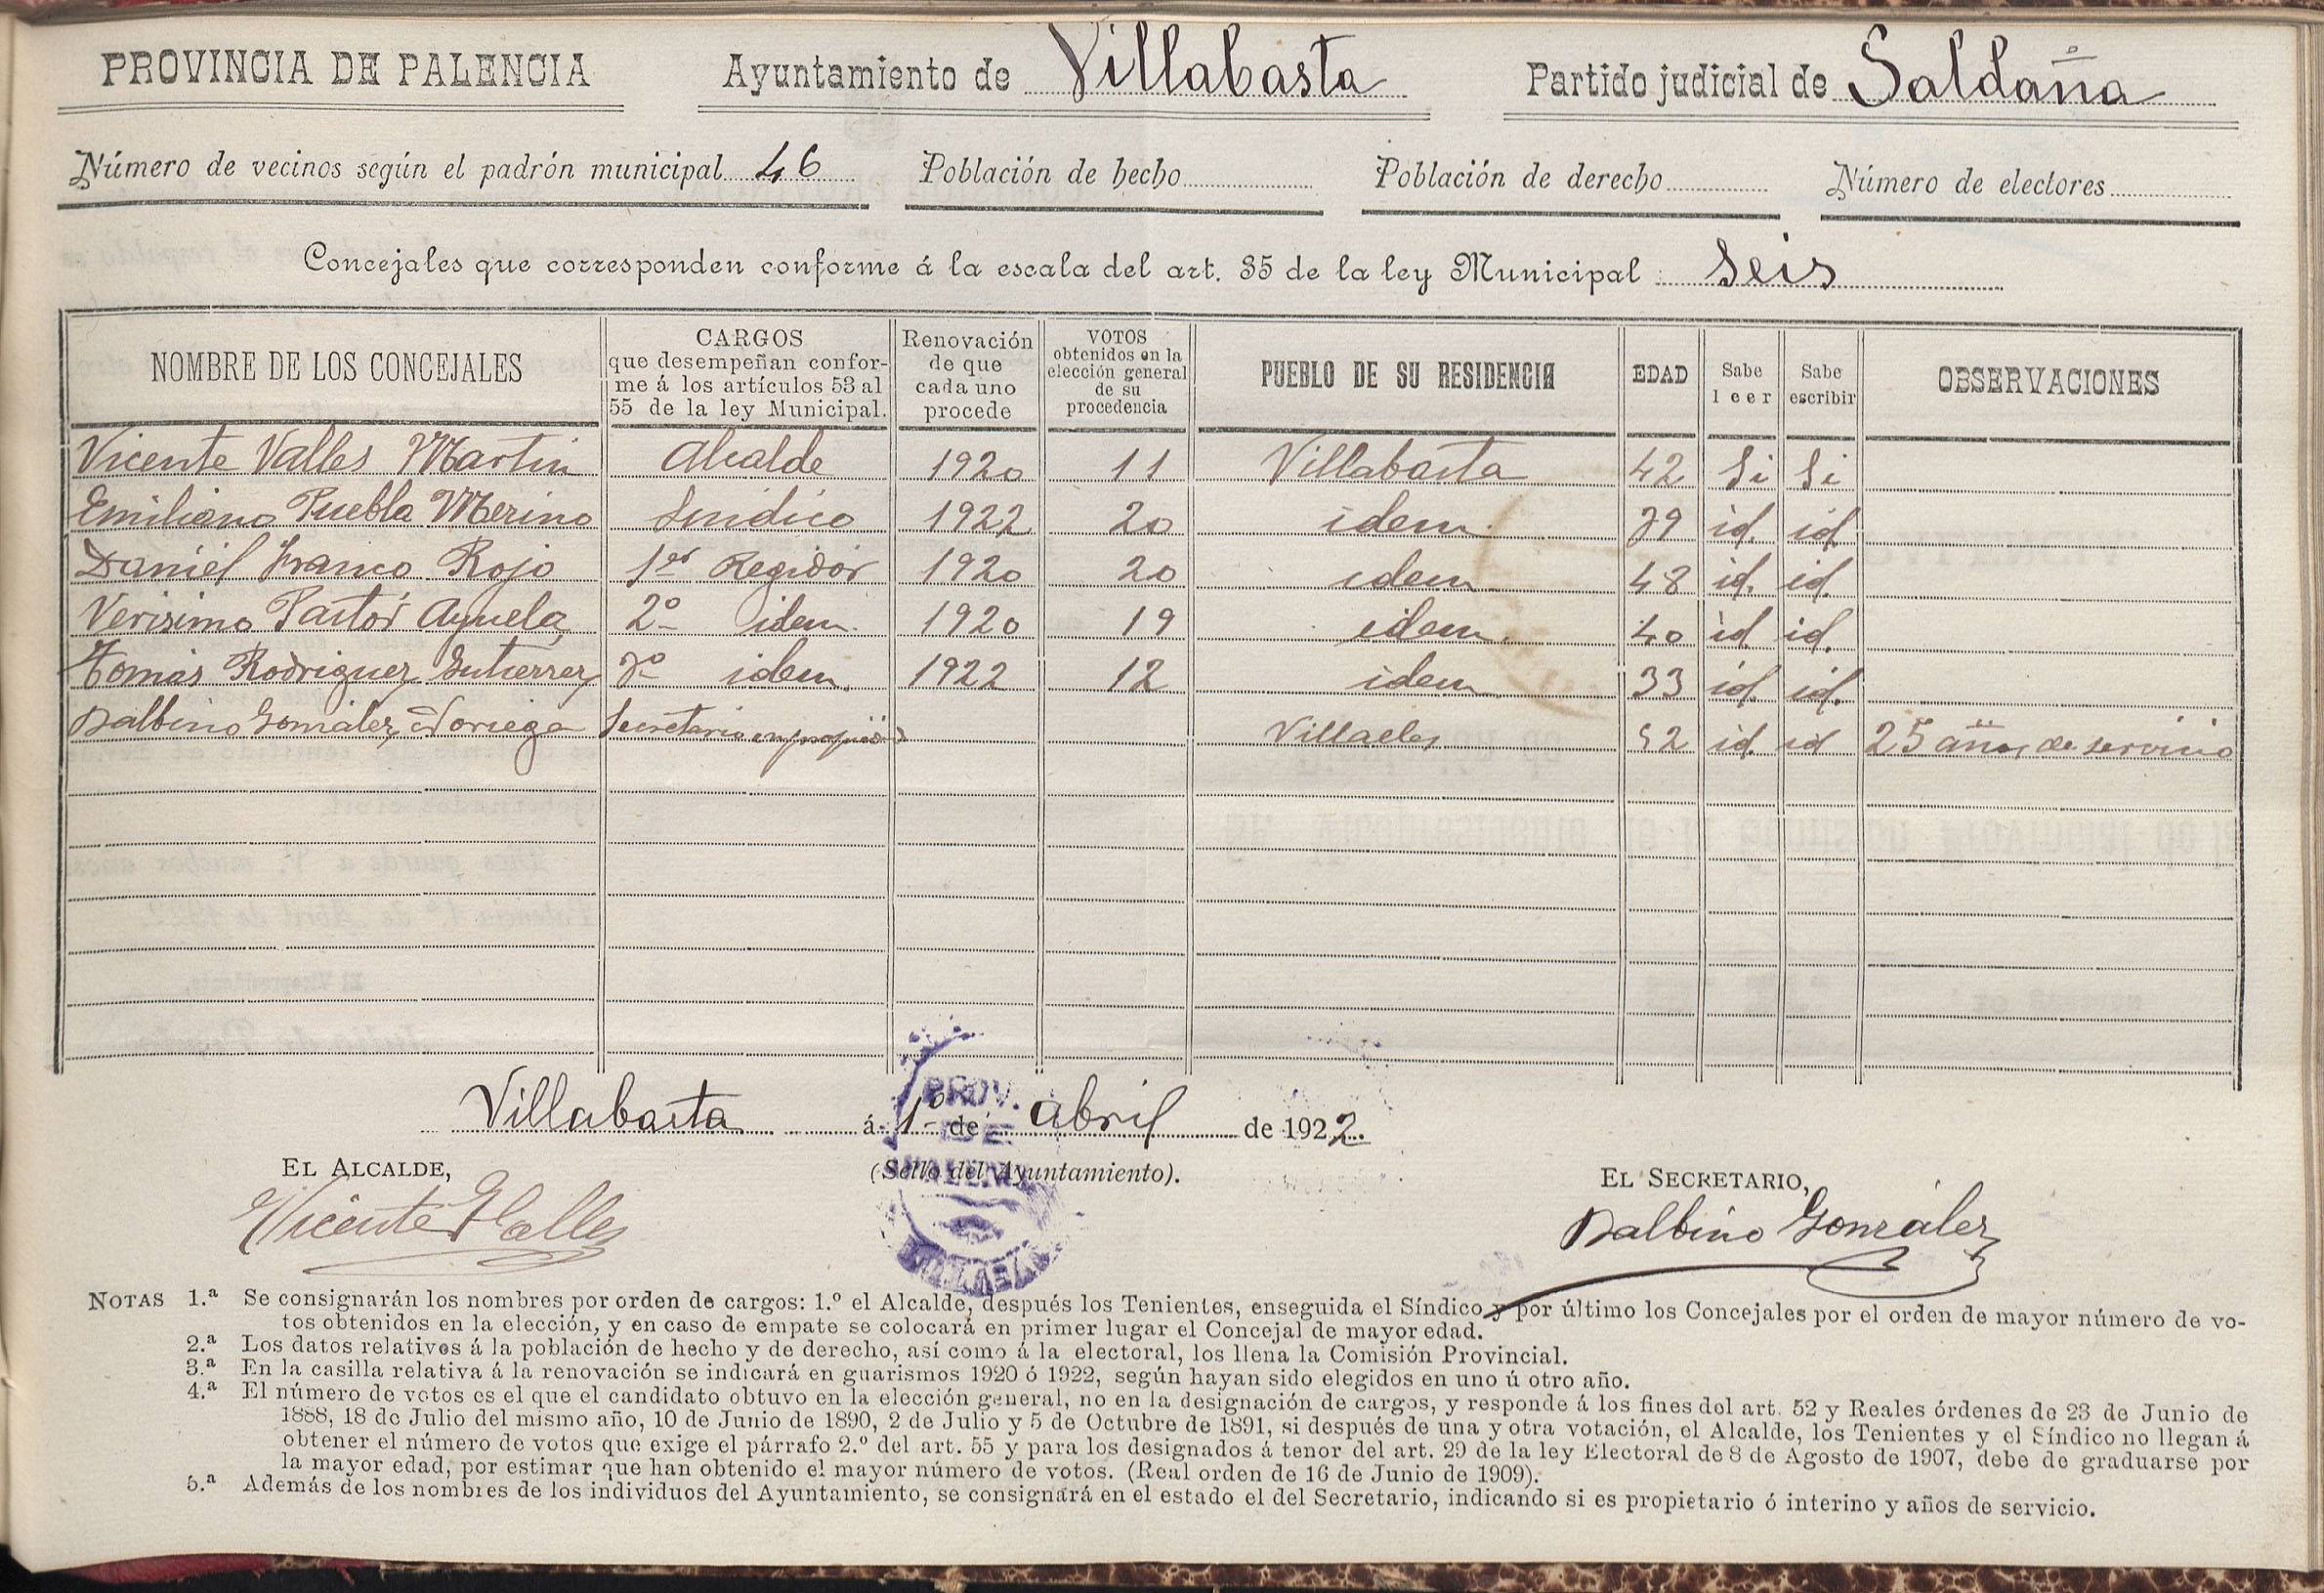 PROVINCIA DE PALENCIA Ayuntamiento de Villabasta Partido judicial de Saldaña
Número de vecinos según el padrón municipal 46 Población de hecho Población de derecho Número de electores
Concejales que corresponden conforme á la escala del art. 35 de la ley Municipal: Seis
NOMBRE DE LOS CONCEJALES CARGOS que desempeñan conforme á los artículos 53 al 55 de la ley Municipal. Renovación de que cada uno procede VOTOS obtenidos en la elección general de su procedencia PUEBLO DE SU RESIDENCIA EDAD Sabe leer Sabe escribir OBSERVACIONES
Vicente Valles Martin Alcalde 1920 11 Villabasta 42 Si Si
Emiliano Puebla Merino Sindico 1922 20 idem 39 id. id
Daniel Franco Rojo 1er Regidor 1920 20 idem 48 id. id.
Verisimo Pastor Ayuela 2º idem. 1920 19 idem. 40 id id.
Tomás Rodriguez Gutierrez 3º idem. 1922 12 idem 33 id. id.
Balbino González Noriega Secretario en propiedad Villaeles 52 id. id 25 años de servicio
Villabasta á 1º de abril de 1922.
PROV.
DE
EL ALCALDE, (Sello del Ayuntamiento). EL SECRETARIO,
Vicente Valles Balbino González
NOTAS 1.ª Se consignarán los nombres por orden de cargos: 1.º el Alcalde, después los Tenientes, enseguida el Síndico y por último los Concejales por el orden de mayor número de vo-
tos obtenidos en la elección, y en caso de empate se colocará en primer lugar el Concejal de mayor edad.
2.ª Los datos relativos á la población de hecho y de derecho, así como á la electoral, los llena la Comisión Provincial.
3.ª En la casilla relativa á la renovación se indicará en guarismos 1920 ó 1922, según hayan sido elegidos en uno ú otro año.
4.ª El número de votos es el que el candidato obtuvo en la elección general, no en la designación de cargos, y responde á los fines del art. 52 y Reales órdenes de 23 de Junio de
1888, 18 de Julio del mismo año, 10 de Junio de 1890, 2 de Julio y 5 de Octubre de 1891, si después de una y otra votación, el Alcalde, los Tenientes y el Síndico no llegan á
obtener el número de votos que exige el párrafo 2.º del art. 55 y para los designados á tenor del art. 29 de la ley Electoral de 8 de Agosto de 1907, debe de graduarse por
la mayor edad, por estimar que han obtenido el mayor número de votos. (Real orden de 16 de Junio de 1909).
5.ª Además de los nombres de los individuos del Ayuntamiento, se consignará en el estado el del Secretario, indicando si es propietario ó interino y años de servicio.